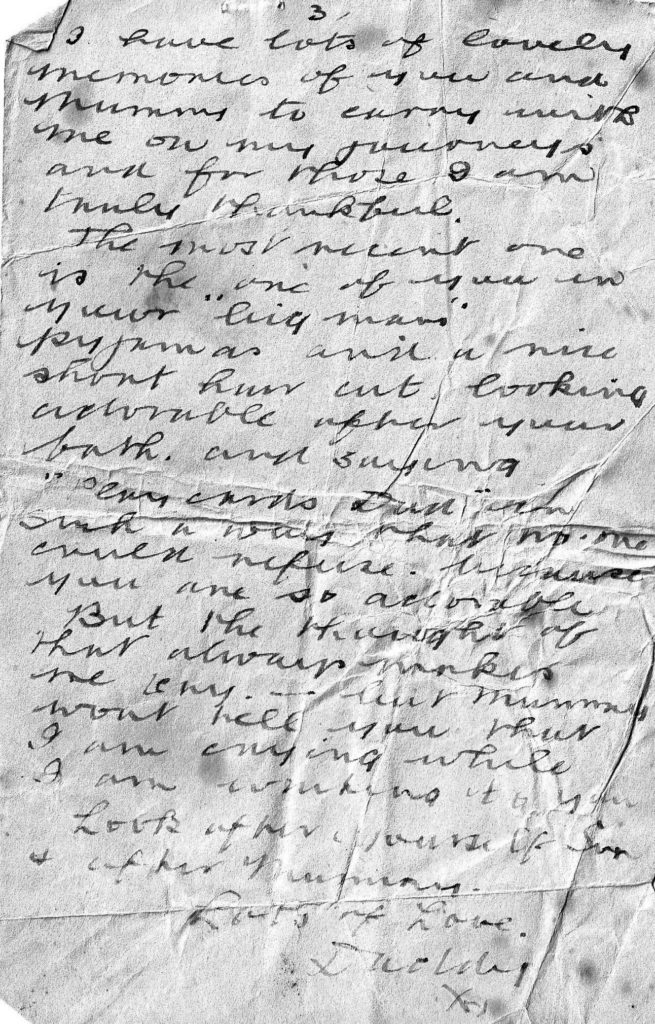 3
I have lots of lovely
memories of you and
Mummy to carry with
me on my journeys
and for those I am
truly thankful.
The most recent one
is the one of you in
your "big mans"
pyjamas and a nice
short hair cut. looking
adorable after your
bath. and saying
"Play cards Dad" in
such a way that no-one
could refuse. because
you are so adorable
But the thought of
that always makes
me cry. — but Mummy
wont tell you that
I am crying while
I am writing to you
Look after yourself Son
& after Mummy.
Lots of Love.
Daddy